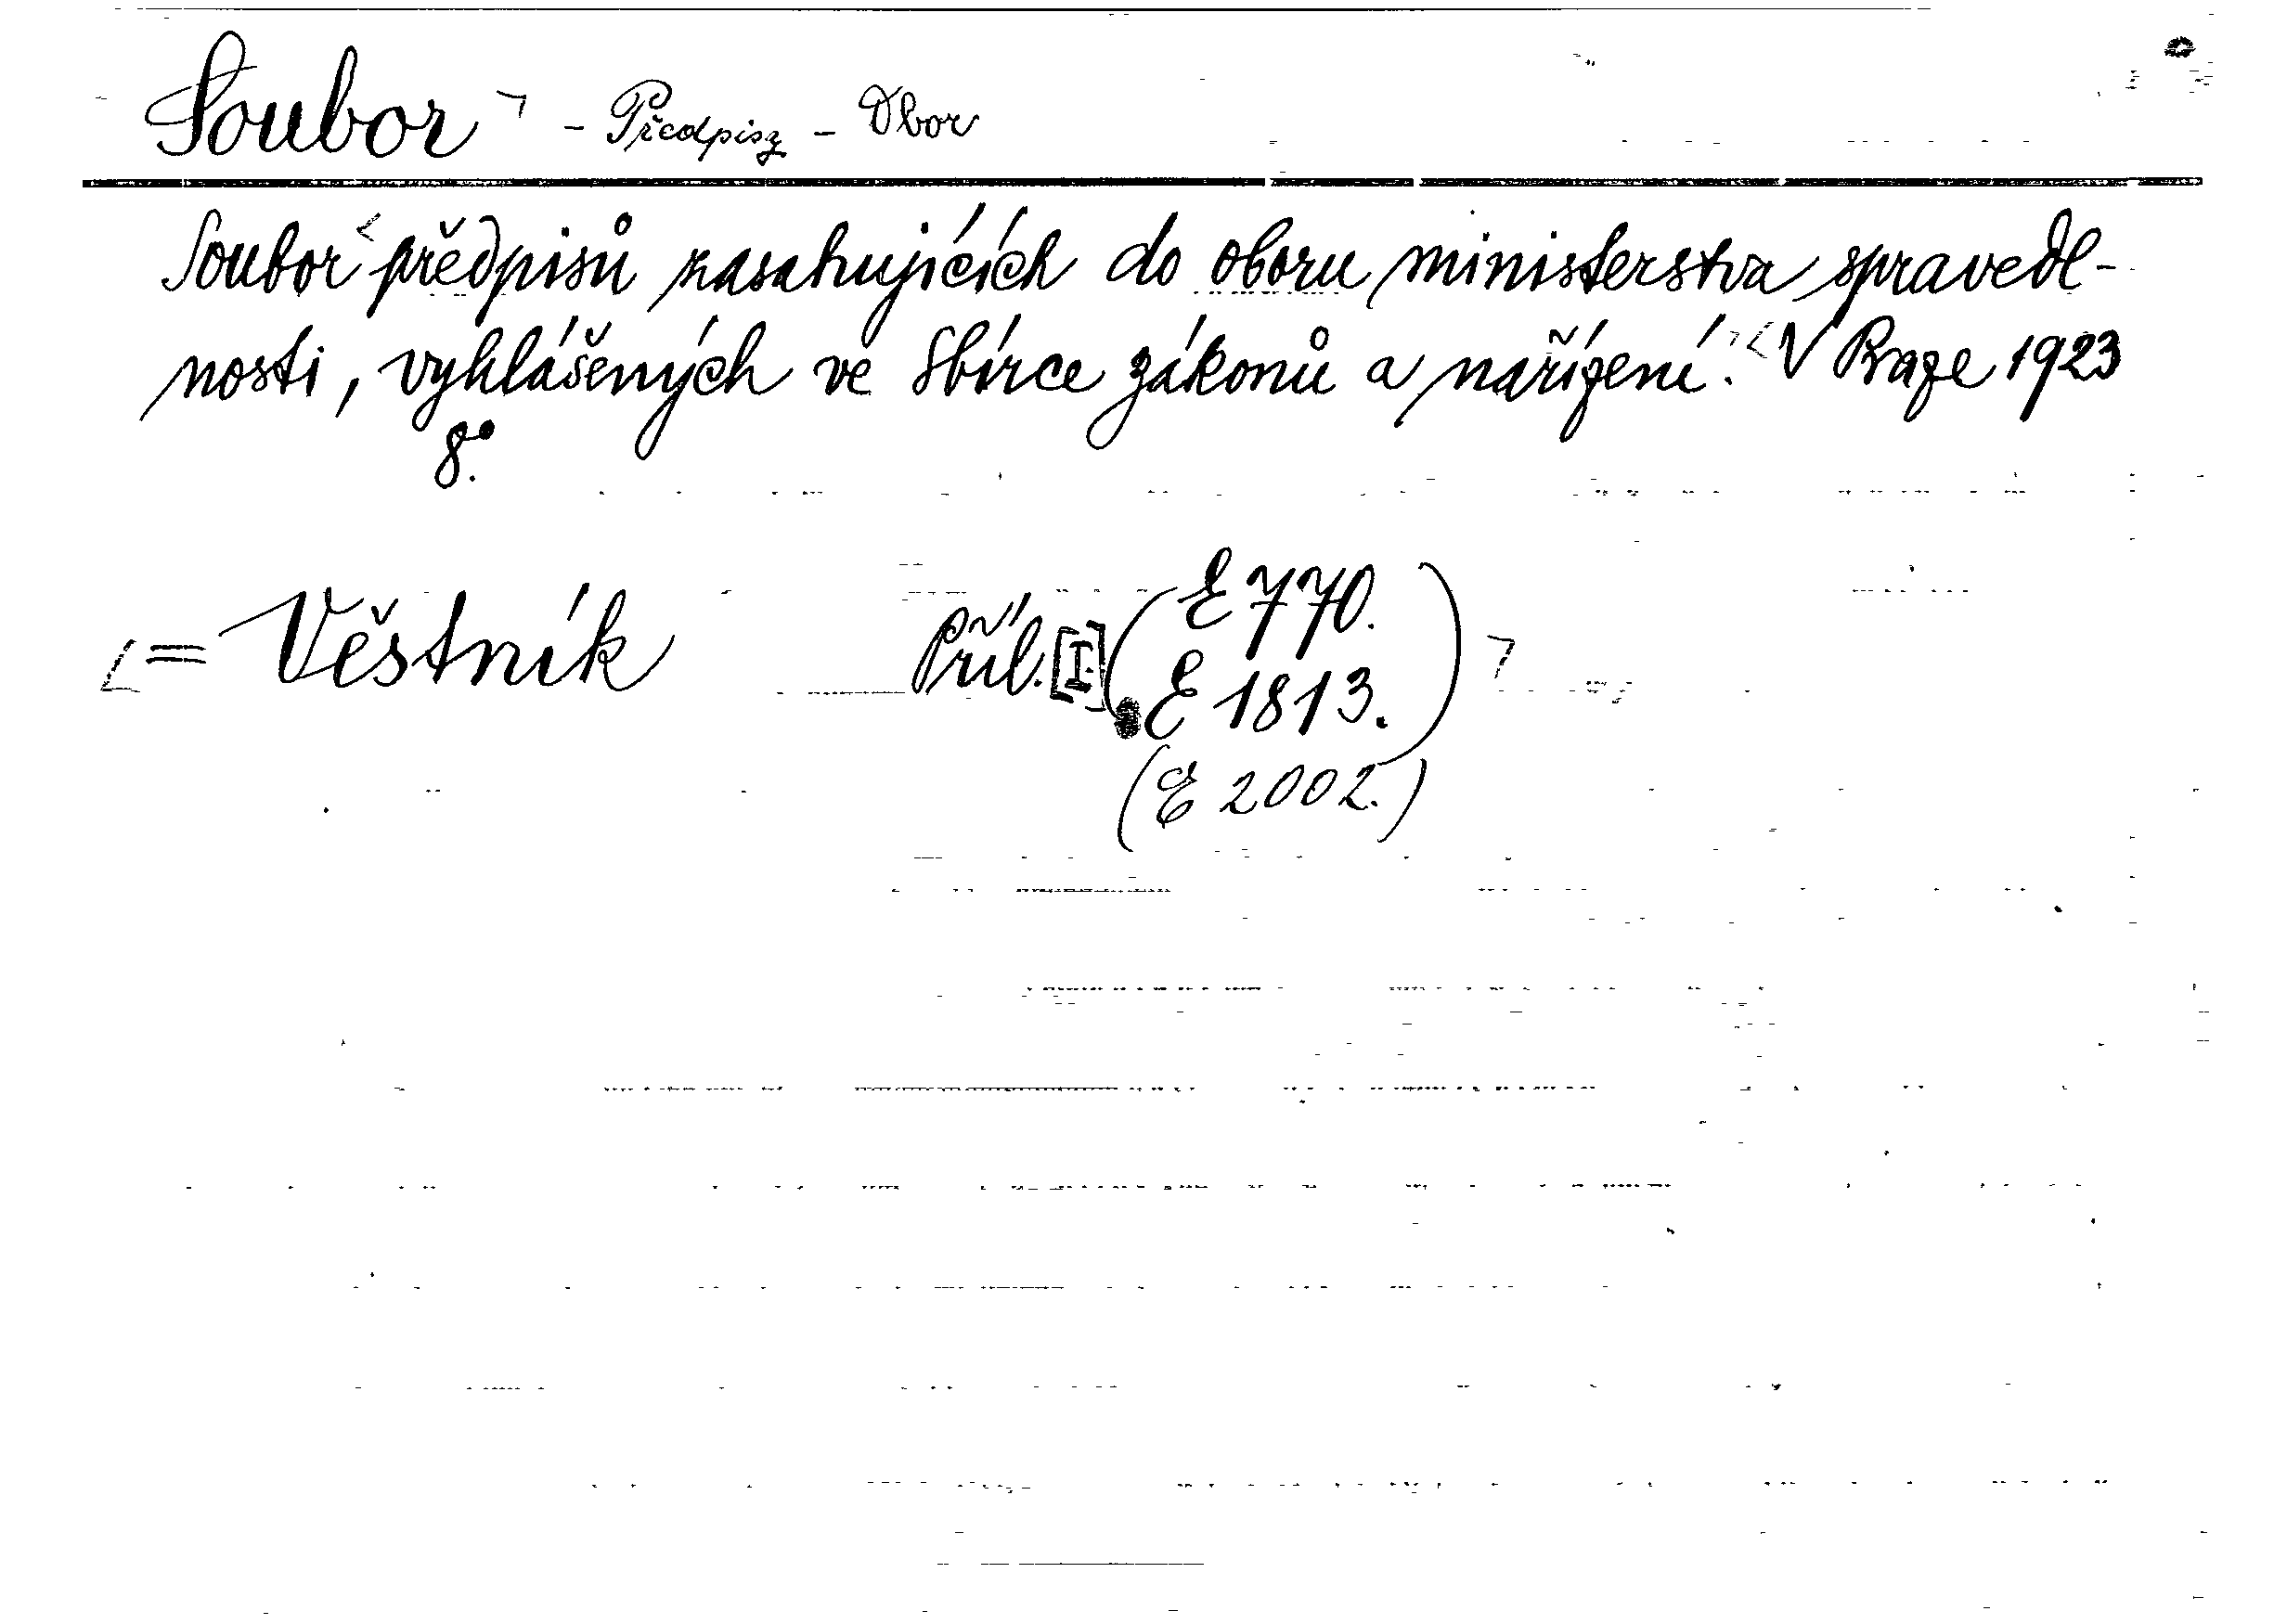 Soubor - Předpisy - Obor
Soubor předpisů zasahujících do oboru ministerstva spravedl-
nosti, vyhlášených ve Sbírce zákonů a nařízení. V Praze 1923
8°.
= Věstník Příl. [I.] (E 770.
E 1813.)
(E 2002.)